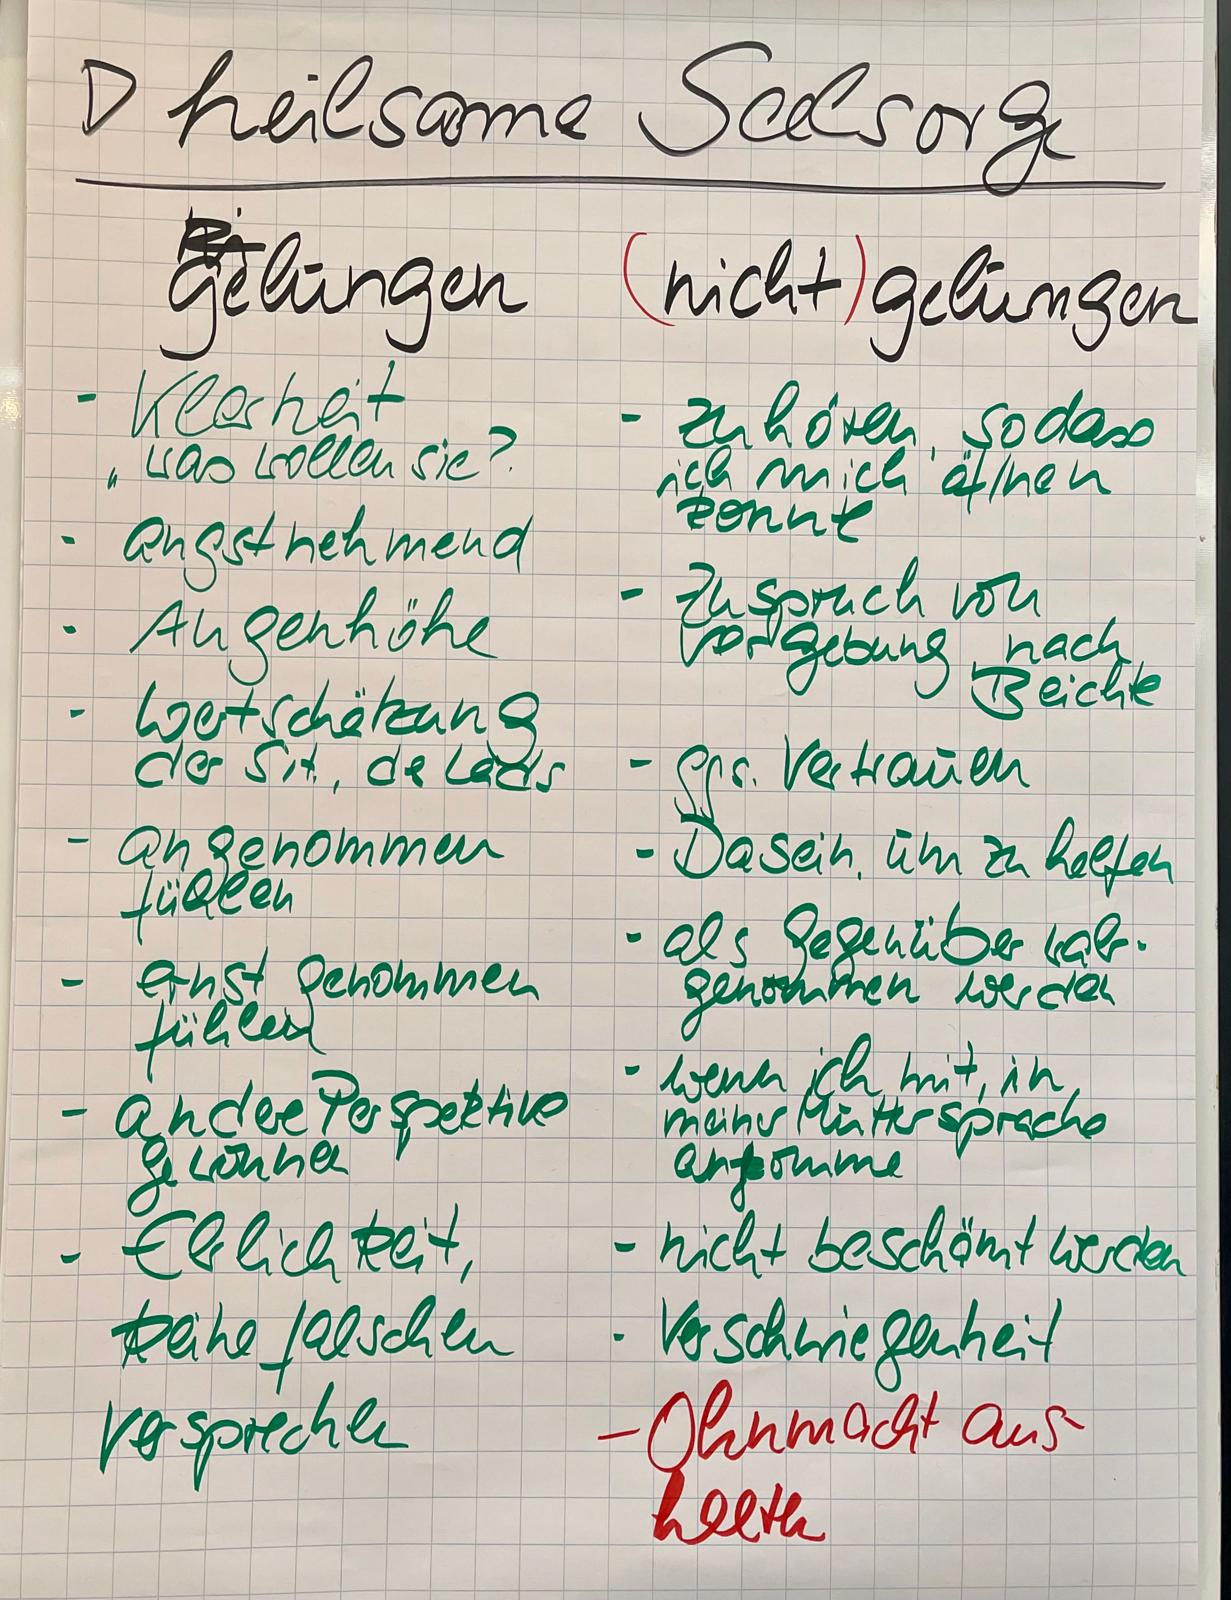 ▷ heilsame Seelsorge
gelungen
(nicht) gelungen
- Klarheit
"was wollen sie?
- angstnehmend
- Augenhöhe
- Wertschätzung
der Sit., de Leids
- angenommen
fühlen
- ernst genommen
fühlen
- andere Perspektive
gewinnen
- Ehrlichkeit,
keine falschen
Versprechen
- zuhören, sodass
ich mich öffnen
konnte
- Zuspruch von
Vergebung nach
Beichte
- ggs. Vertrauen
- Dasein, um zu helfen
- als Gegenüber wahr-
genommen werden
- wenn ich mit, in
meiner Muttersprache
ankomme
- nicht beschämt werden
- Verschwiegenheit
- Ohnmacht aus-
halten